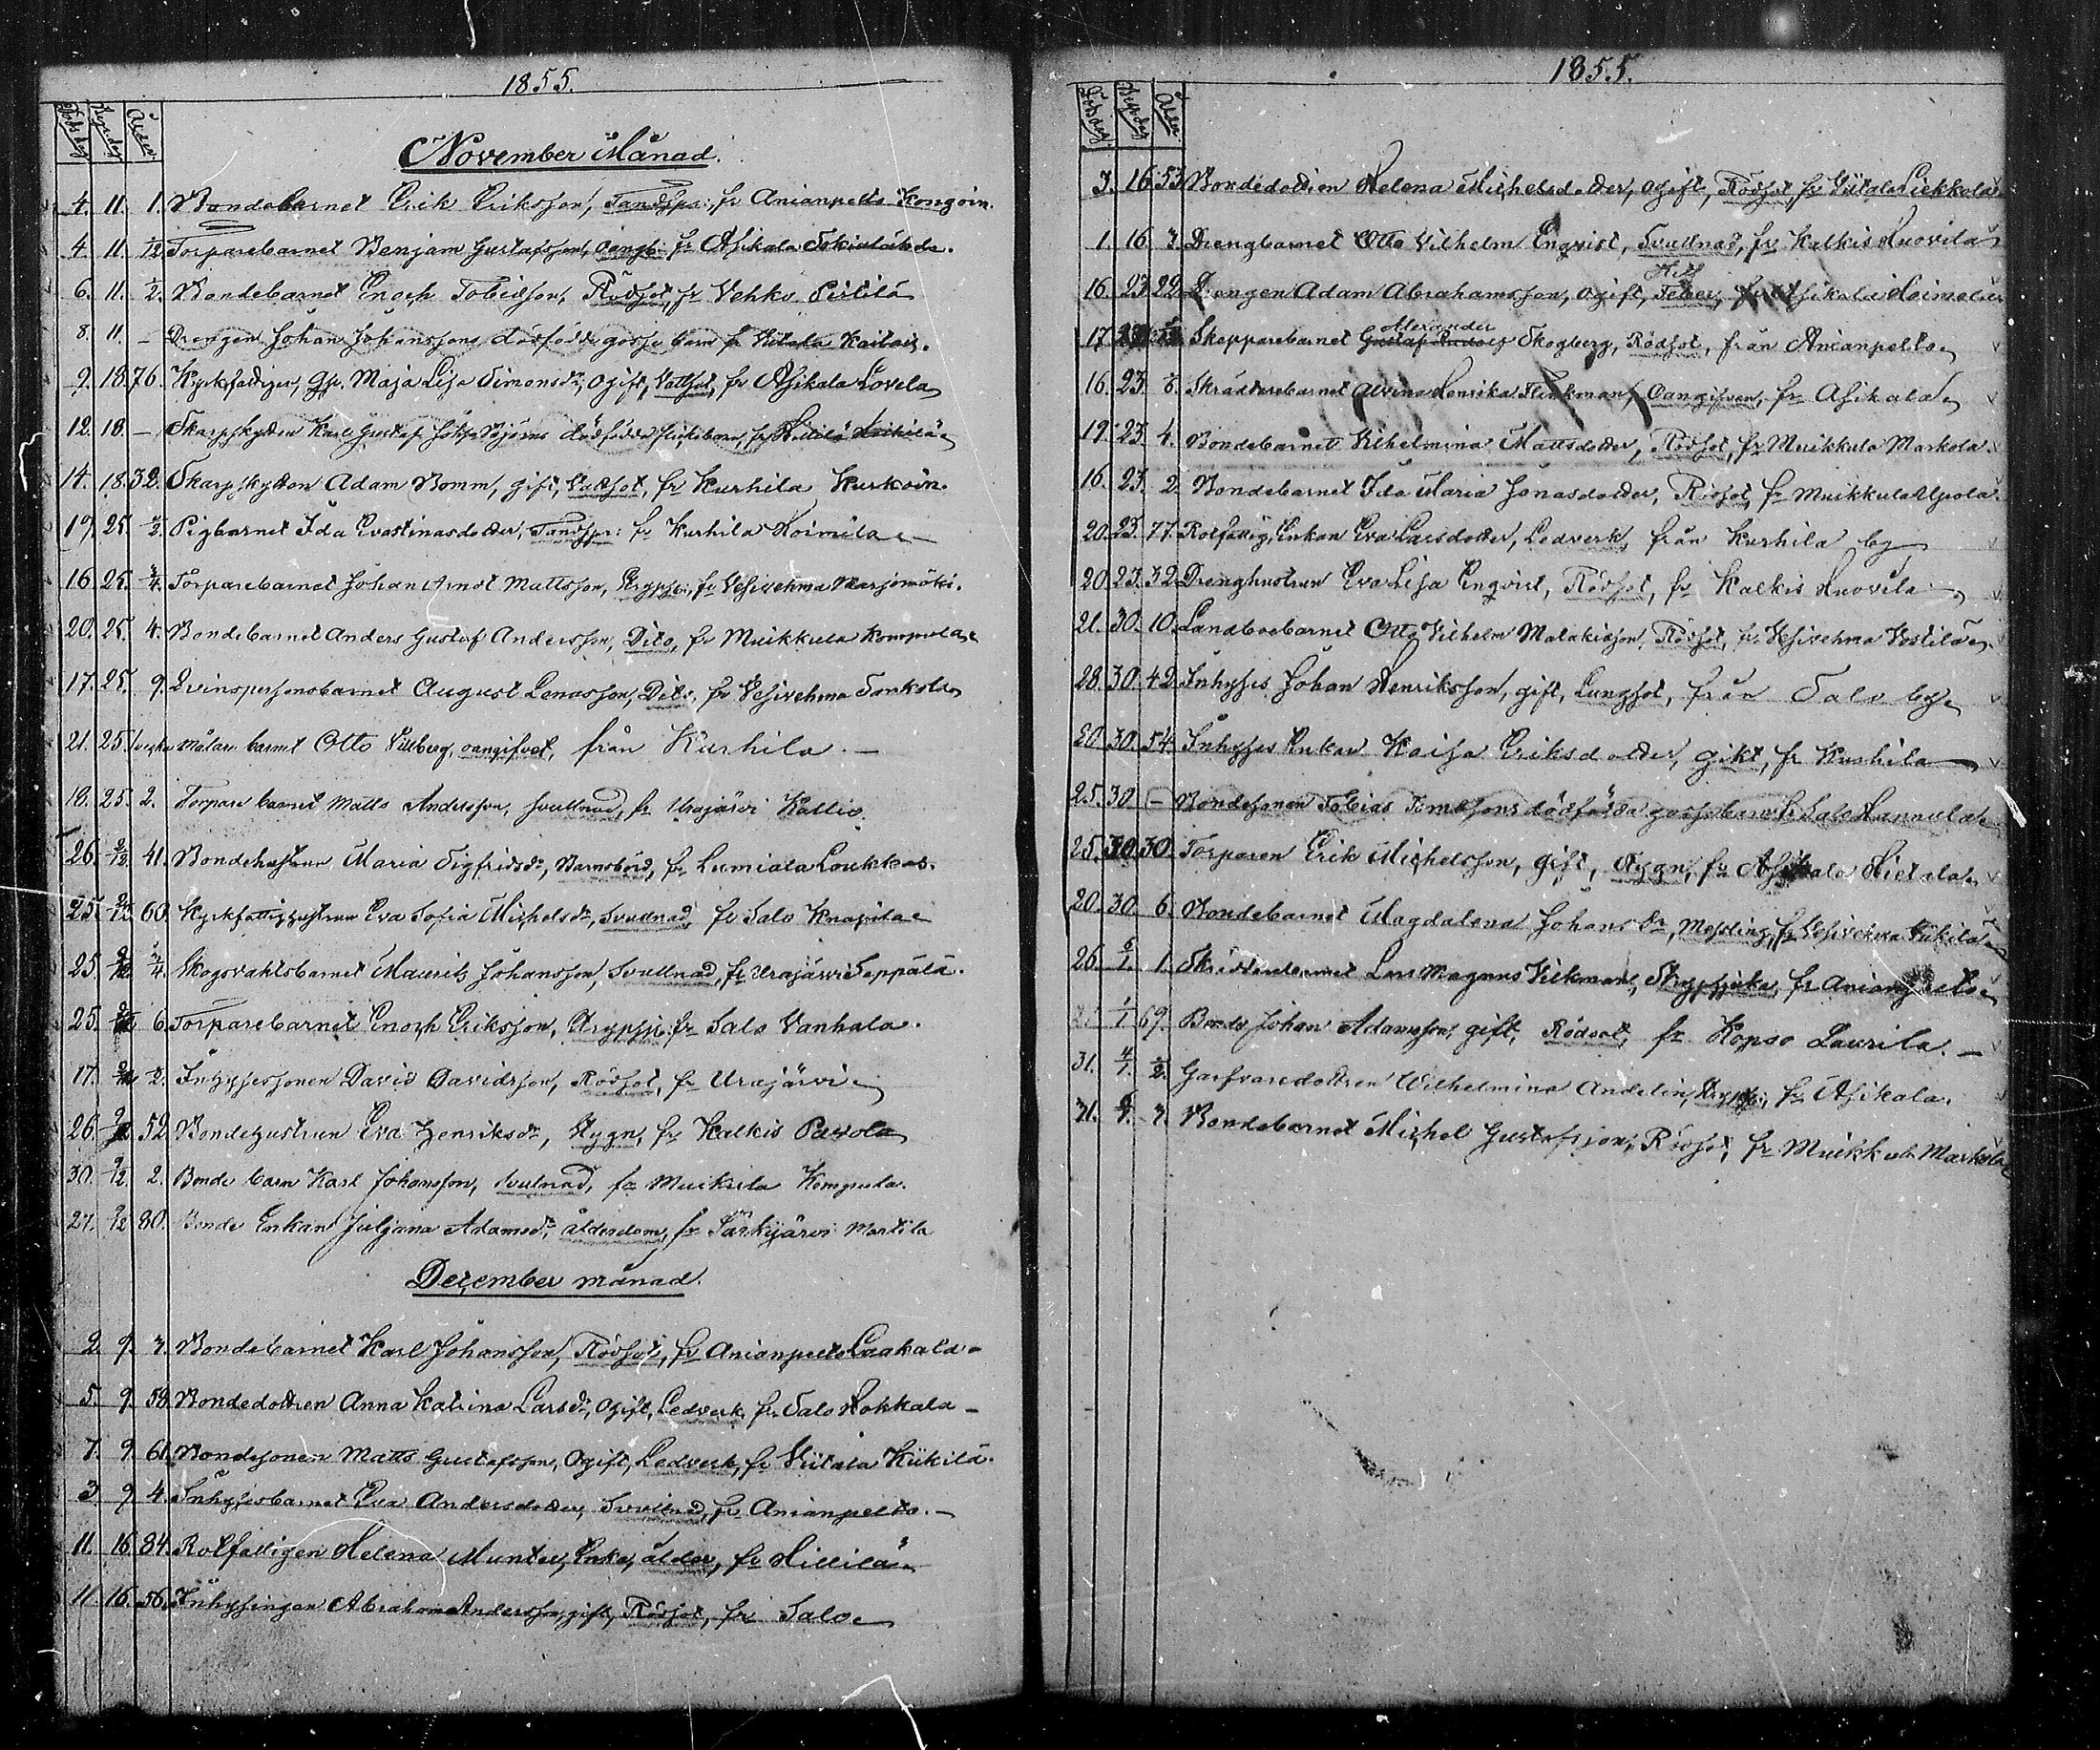 1855.
Dödsdag Begr.dag Ålder
November Månad.
4. 11. 1. Bondebarnet Erik Eriksson, Tandspr: fr Anianpelto Kongoin.
4. 11. 1/12 Torparebarnet Benjam Gustafsson, oangb. fr Asikala
6. 11. 1/2. Bondebarnet Enoch Tobiasson, Rödsot, fr Vehko Pirtilä
8. 11. – Drengen Johan Johanssons dödfödde gosse barn fr Viitala Kaitois.
9. 18. 76. Kyrkfattiges, Maja Lisa Simonsdr, ogift, Vattsot, fr Asikala Lovela
12. 18. – Skarpskytten Karl Gustaf Björns dödfödda flickebarn, fr Hillilä
14. 18. 32. Skarpskytten Adam Bomm, gift, Vattsot, fr Kurhila Kurkoin.
19. 25. 1/2. Pigbarnet Ida Evastinasdotter, Tandspr: fr Kurhila Hoimila
16. 25. 3/4. Torparebarnet Johan Arndt Mattsson, Strypsj:, fr Vesivehma Marjomäki.
20. 25. 4. Bondebarnet Anders Gustaf Andersson, Dito, fr Muikkula Kompula
17. 25. 9. Qvinspersonsbarnet August Lenasson, Dito, fr Vesivehma Tonkola
21. 25. Målare barnet Otto Villberg, oangifvet, från Kurhila. —
18. 25. 2. Torpare barnet Matts Andersson, svullnad, fr Urajärvi Kallio.
26. 2/12. 41. Bondehustrun Maria Sigfridsdr, Barnsbörd, fr Lumiala Loukkas.
25. 2/12. 60. Kyrkfattighustrun Eva Sofia Michelsdr, Svullnad, fr Salo Knapila
25. 2/12. 3/4. Skogsvaktsbarnet Mauritz Johansson, Svullnad, fr Urajärvi Seppälä.
25. 2/12 6. Torparebarnet Enoch Eriksson, Strypsj: fr Salo Vanhala.
17. 2/12 1/2. Inhysessonen David Davidsson, Rödsot, fr Urajärvi
26. 2/12 52. Bondehustrun Eva Henriksdr, Stygn, fr Kalkis Pavola
30. 9/12. 2. Bonde barn Karl Johansson, Svulnad, fr Muikula Kompula.
27. 9/12 80. Bonde Enkan Juljana Adamsdr, ålderdom, fr Särkijärvi Martila
December månad.
2. 9. 3. Bondebarnet Karl Johansson, Rödsot, fr Anianpelto Laakala
5. 9. 59. Bondedottren Anna Katrina Larsdr, Ogift, Ledverk, fr Salo Hokkala –
7. 9. 61. Bondesonen Matts Gustafsson, Ogift, Ledverk, fr Viitala Kiikilä.
3. 9. 4. Inhysesbarnet Eva Andersdotter, Svullnad, fr Anianpelto. —
11. 16. 84. Rotfattigen Helena Munter, Enka, ålder, fr Hillilä
11. 16. 56. Inhysingen Abraham Andersson, gift, Rödsot, fr Salo
1855.
Dödsdag Begr.dag Ålder
3. 16. 53. Bondedottren Helena Michelsdotter, ogift, Rödsot, fr Viitala Liekkola
1. 16. 3. Drengbarnet Otto Vilhelm Enqvist, Svullnad, fr Kalkis Huovila
16. 23. 22. Drengen Adam Abrahamsson, ogift, Het Feber, fr Asikala Hoimola
17. Skepparebarnet Gustaf Alexander Skogberg, Rödsot, från Anianpelto
16. 23. Skräddarebarnet Alvina Henrika Flinkman, Oangifven, fr Asikala
19. 23. 4. Bondebarnet Vilhelmina Mattsdotter, Rödsot, fr Muikkula Markola
16. 23. 2. Bondebarnet Ida Maria Jonasdotter, Rödsot, fr Muikkula Upola
20. 23. 77. Rotfattig Enkan Eva Larsdotter, Ledverk, från Kurhila by
20. 23. 32. Drenghustrun Eva Lisa Enqvist, Rödsot, fr Kalkis Huovila
21. 30. 10. Landbobarnet Otto Vilhelm Malakiasson, Rödsot, fr Vesivehma Vostila
28. 30. 42. Inhyses Johan Henriksson, gift, Lungsot, från Salo by
20. 30. 54. Inhyses Enkan Kaisa Eriksdotter, gikt, fr Kurhila
25. 30 – Bondesonen Tobias Tomassons dödfödda gossebarn fr Salo Hannula
25. 30. 30. Torparen Erik Michelsson, gift, Stygn, fr Asikala Hietala
20. 30. 6. Bondebarnet Magdalena Johansdr, Messling, fr Vesivehma Kiikilä
26. 6/1. 1. Skräddarebarnet Lars Magnus Vikman, Strypsjuka, fr Anianpelto
1/1 69. Bonde Johan Adamsson, gift, Rödsot, fr Kopso Laurila. —
31. 4/1. 1/2. Garfvaredottren Wilhelmina Andelin, Strypsj:, fr Asikala.
31. 6/1. 3. Bondebarnet Michel Gustafsson, Rödsot, fr Muikkula Markola